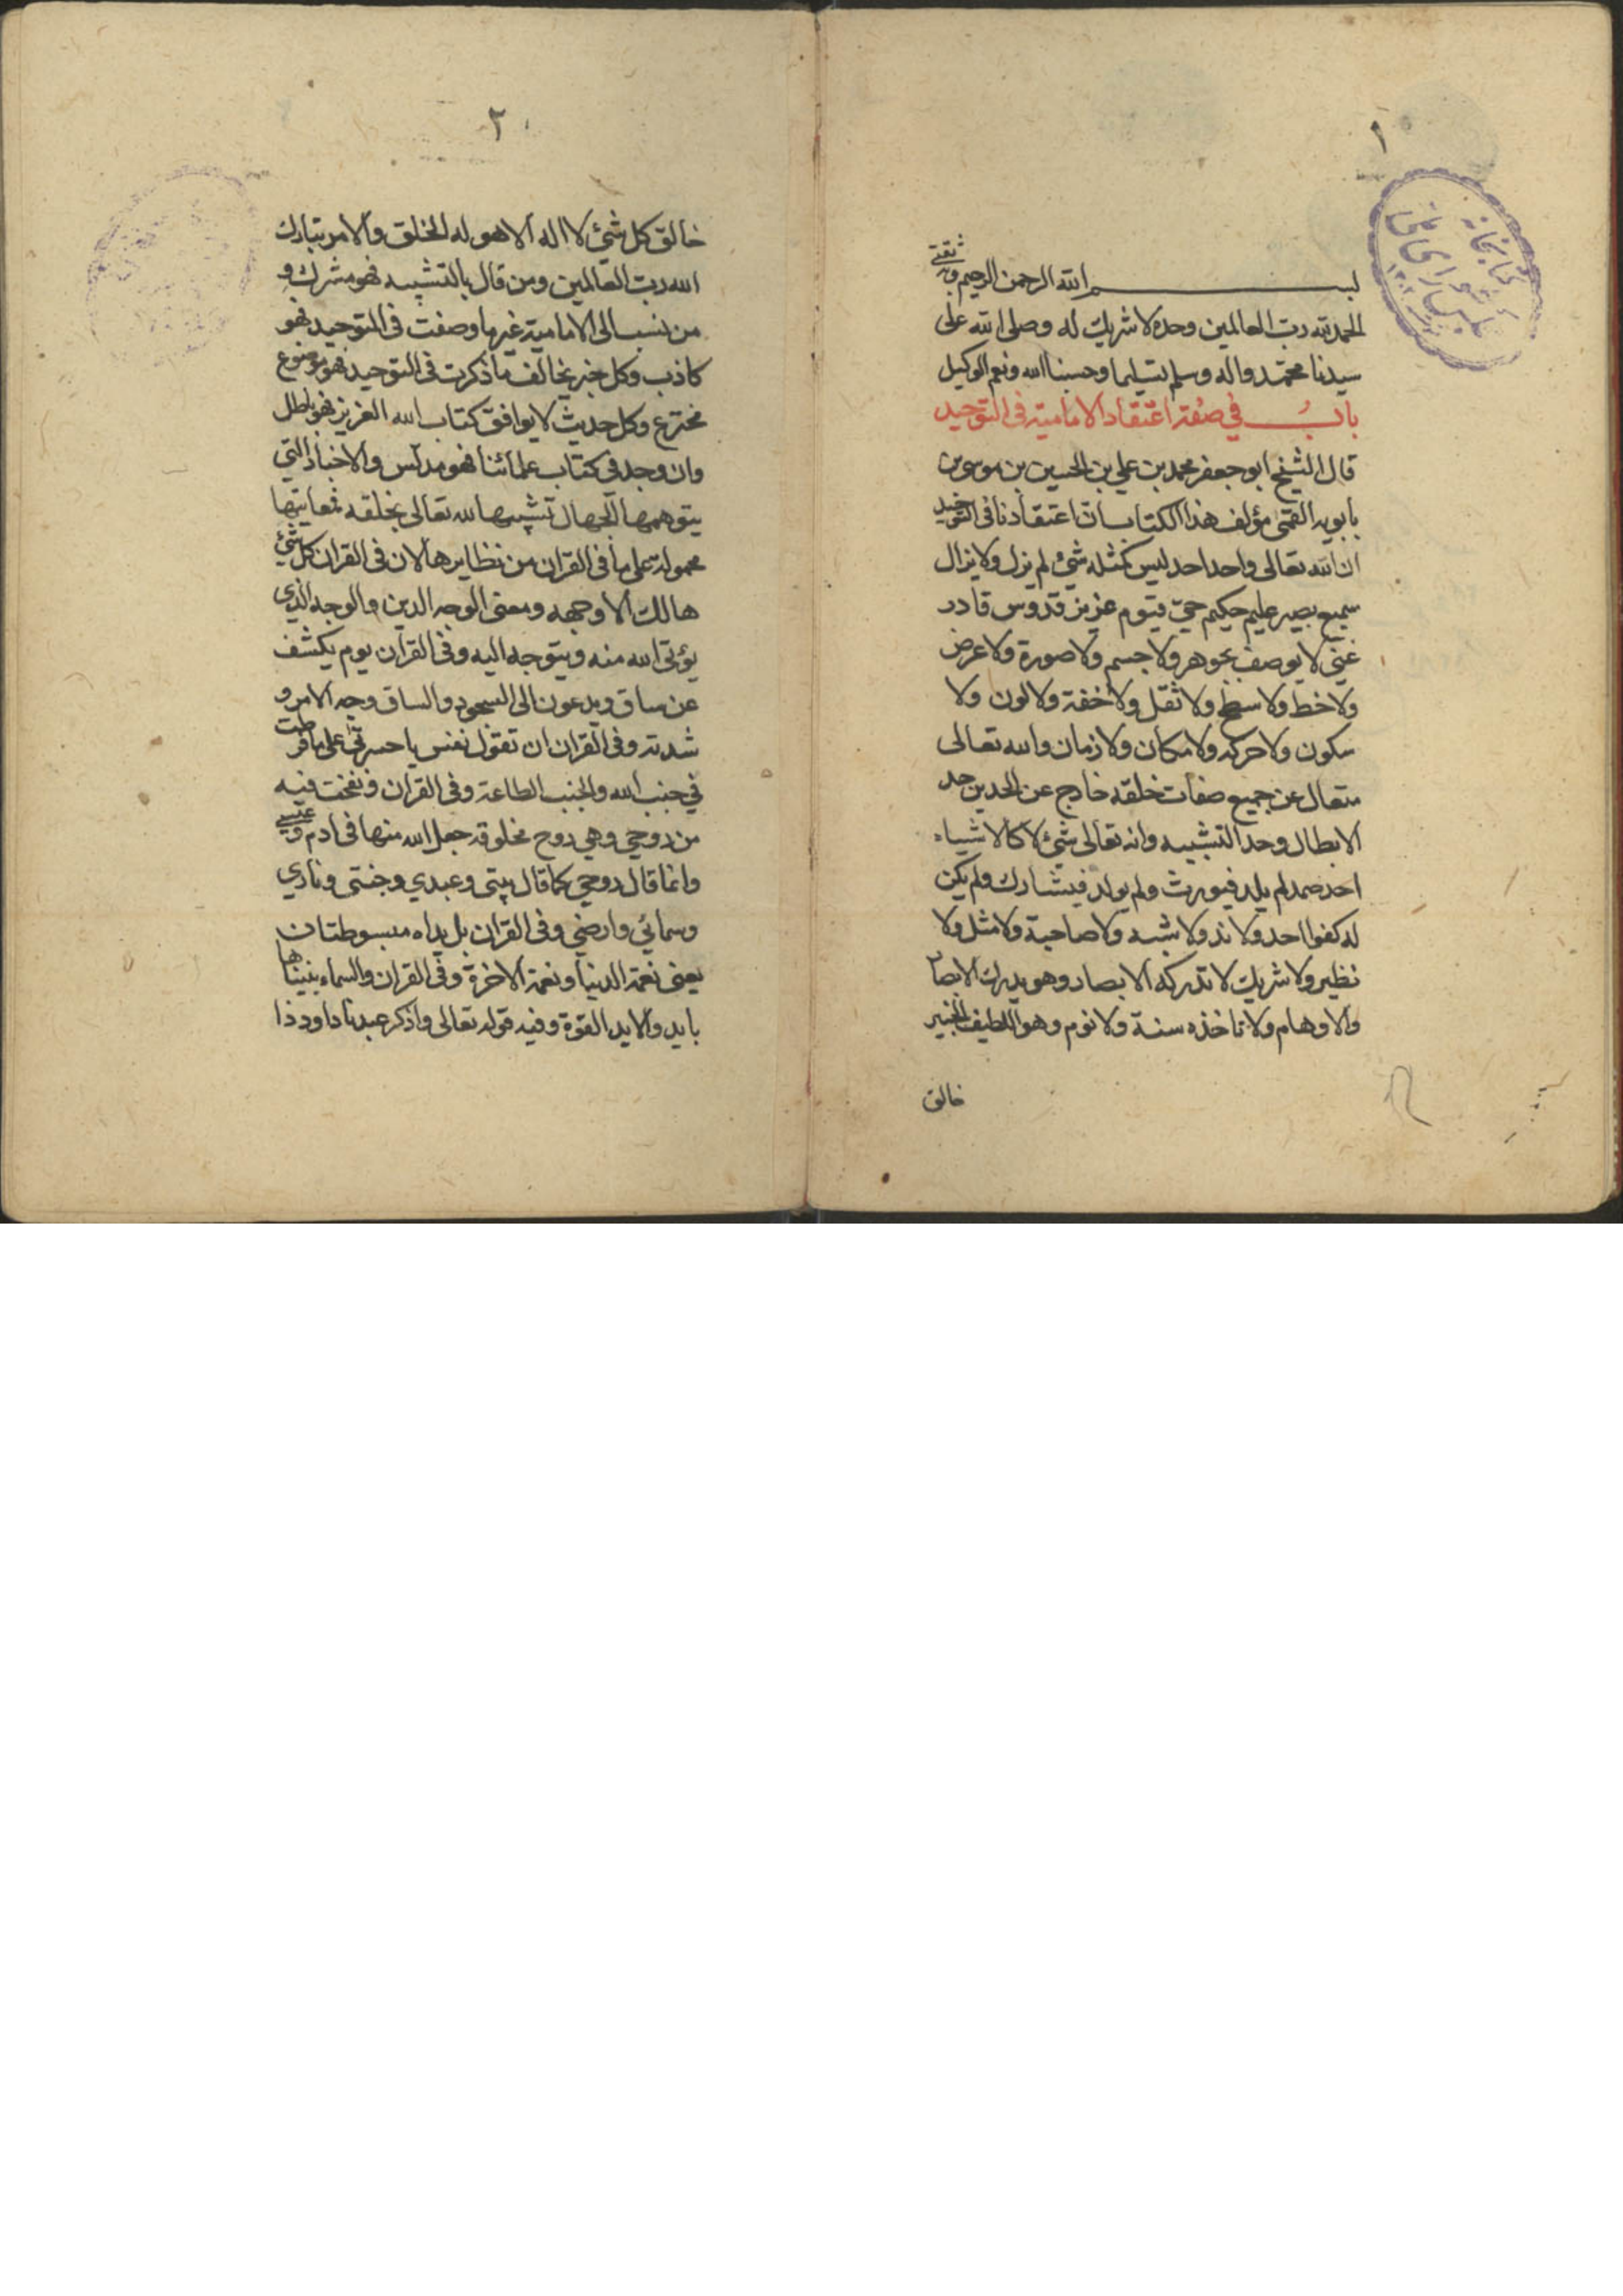 ١
بسم الله الرحمن الرحيم وبه ثقتي
الحمد لله رب العالمين وحده لا شريك له وصلى الله على
سيدنا محمد واله وسلم تسليما وحسبنا الله ونعم الوكيل
باب في صفة اعتقاد الامامية في التوحيد
قال الشيخ ابو جعفر محمد بن علي بن الحسين بن موسى بن
بابويه القمي مؤلف هذا الكتاب ان اعتقادنا في التوحيد
ان الله تعالى واحد احد ليس كمثله شئ لم يزل ولا يزال
سميع بصير عليم حكيم حي قيوم عزيز قدوس قادر
غني لا يوصف بجوهر ولا جسم ولا صورة ولا عرض
ولا خط ولا سطح ولا ثقل ولا خفة ولا لون ولا
سكون ولا حركه ولا مكان ولا زمان والله تعالى
متعال عن جميع صفات خلقه خارج عن الحدين حد
الابطال وحد التشبيه وانه تعالى شئ لا كالاشياء
احد صمد لم يلد فيورث ولم يولد فيشارك ولم يكن
له كفوا احد ولا ند ولا شبه ولا صاحبة ولا مثل ولا
نظير ولا شريك لا تدركه الابصار وهو يدرك الابصار
والاوهام ولا تاخذه سنة ولا نوم وهو اللطيف الخبير
خالق
٢
خالق كل شئ لا اله الا هو له الخلق والامر تبارك
الله رب العالمين ومن قال بالتشبيه فهو مشرك و
من نسب الى الامامية غير ما وصفت في التوحيد فهو
كاذب وكل خبر يخالف ما ذكرت في التوحيد فهو موضوع
مخترع وكل حديث لا يوافق كتاب الله العزيز فهو باطل
وان وجد في كتاب علمائنا فهو مدلس والاخبار التي
يتوهمها الجهال تشبيها لله تعالى بخلقه فمعانيها
محمولة على ما في القران من نظايرها لان في القران كل شئ
هالك الا وجهه ومعنى الوجه الدين والوجه الذي
يؤتى الله منه ويتوجه اليه وفي القران يوم يكشف
عن ساق ويدعون الى السجود والساق وجه الامر و
شدته وفي القران ان تقول نفس يا حسرتى على ما فرطت
في جنب الله والجنب الطاعة وفي القران ونفخت فيه
من روحي وهي روح مخلوقة جعل الله منها في ادم وعيسى
وانما قال روحي كما قال بيتي وعبدي وجنتي وناري
وسمائي وارضي وفي القران بل يداه مبسوطتان
يعني نعمة الدنيا ونعمة الاخرة وفي القران والسماء بنيناها
بايد والايد القوة وفيه قوله تعالى واذكر عبدنا داود ذا